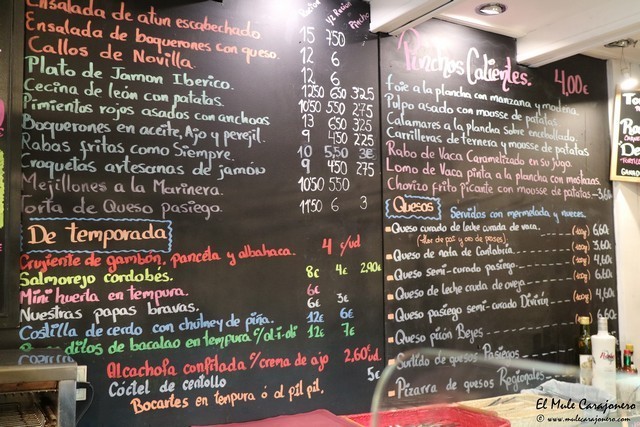 Ensalada de atun escabechado. 15 7'50
Ensalada de boquerones con queso. 12 6
Callos de Novilla. 12 6
Plato de Jamon Iberico. 12'50 6'50 3'25
Cecina de león con patatas. 10'50 5'50 2'75
Pimientos rojos asados con anchoas 13 6'50 3'25
Boquerones en aceite, Ajo y perejil. 9 4'50 2'25
Rabas fritas como Siempre. 10 5,50 3€
Croquetas artesanas de jamón 9 4'50 2'75
Mejillones a la Marinera. 10'50 5'50
Torta de Queso pasiego. 11'50 6 3
De temporada
Crujiente de gambón, panceta y albahaca. 4 €/ud
Salmorejo cordobés. 8€ 4€ 2,90€
Mini huerta en tempura. 6€
Nuestras papas bravas. 6€ 3€
Costilla de cerdo con chutney de piña. 12€ 6€
dillos de bacalao en tempura c/al·i·oli 12€ 7€
Alcachofa confitada c/crema de ajo 2,60€ud.
Cóctel de centollo 5€
Bocartes en tempura ó al pil pil.
Pinchos Calientes. 4,00€
foie a la plancha con manzana y modena.
Pulpo asado con mousse de patatas
Calamares a la plancha sobre encebollado.
Carrilleras de ternera y mousse de patatas.
Rabo de Vaca Caramelizado en su jugo.
Lomo de Vaca pinta a la plancha con mostaza.
Chorizo frito picante con mousse de patatas. 3,60
Quesos Servidos con mermelada y nueces.
Queso curado de leche cruda de vaca. 6,60€
Queso de nata de Cantabria. 3,60€
Queso semi-curado pasiego. 4,60€
Queso de leche cruda de oveja. 6,60€
Queso pasiego semi-curado Divirín 4,60€
Queso picón Bejes
Surtido de quesos Pasiegos
Pizarra de quesos Regionales
El Mule Carajonero
© www.mulecarajonero.com